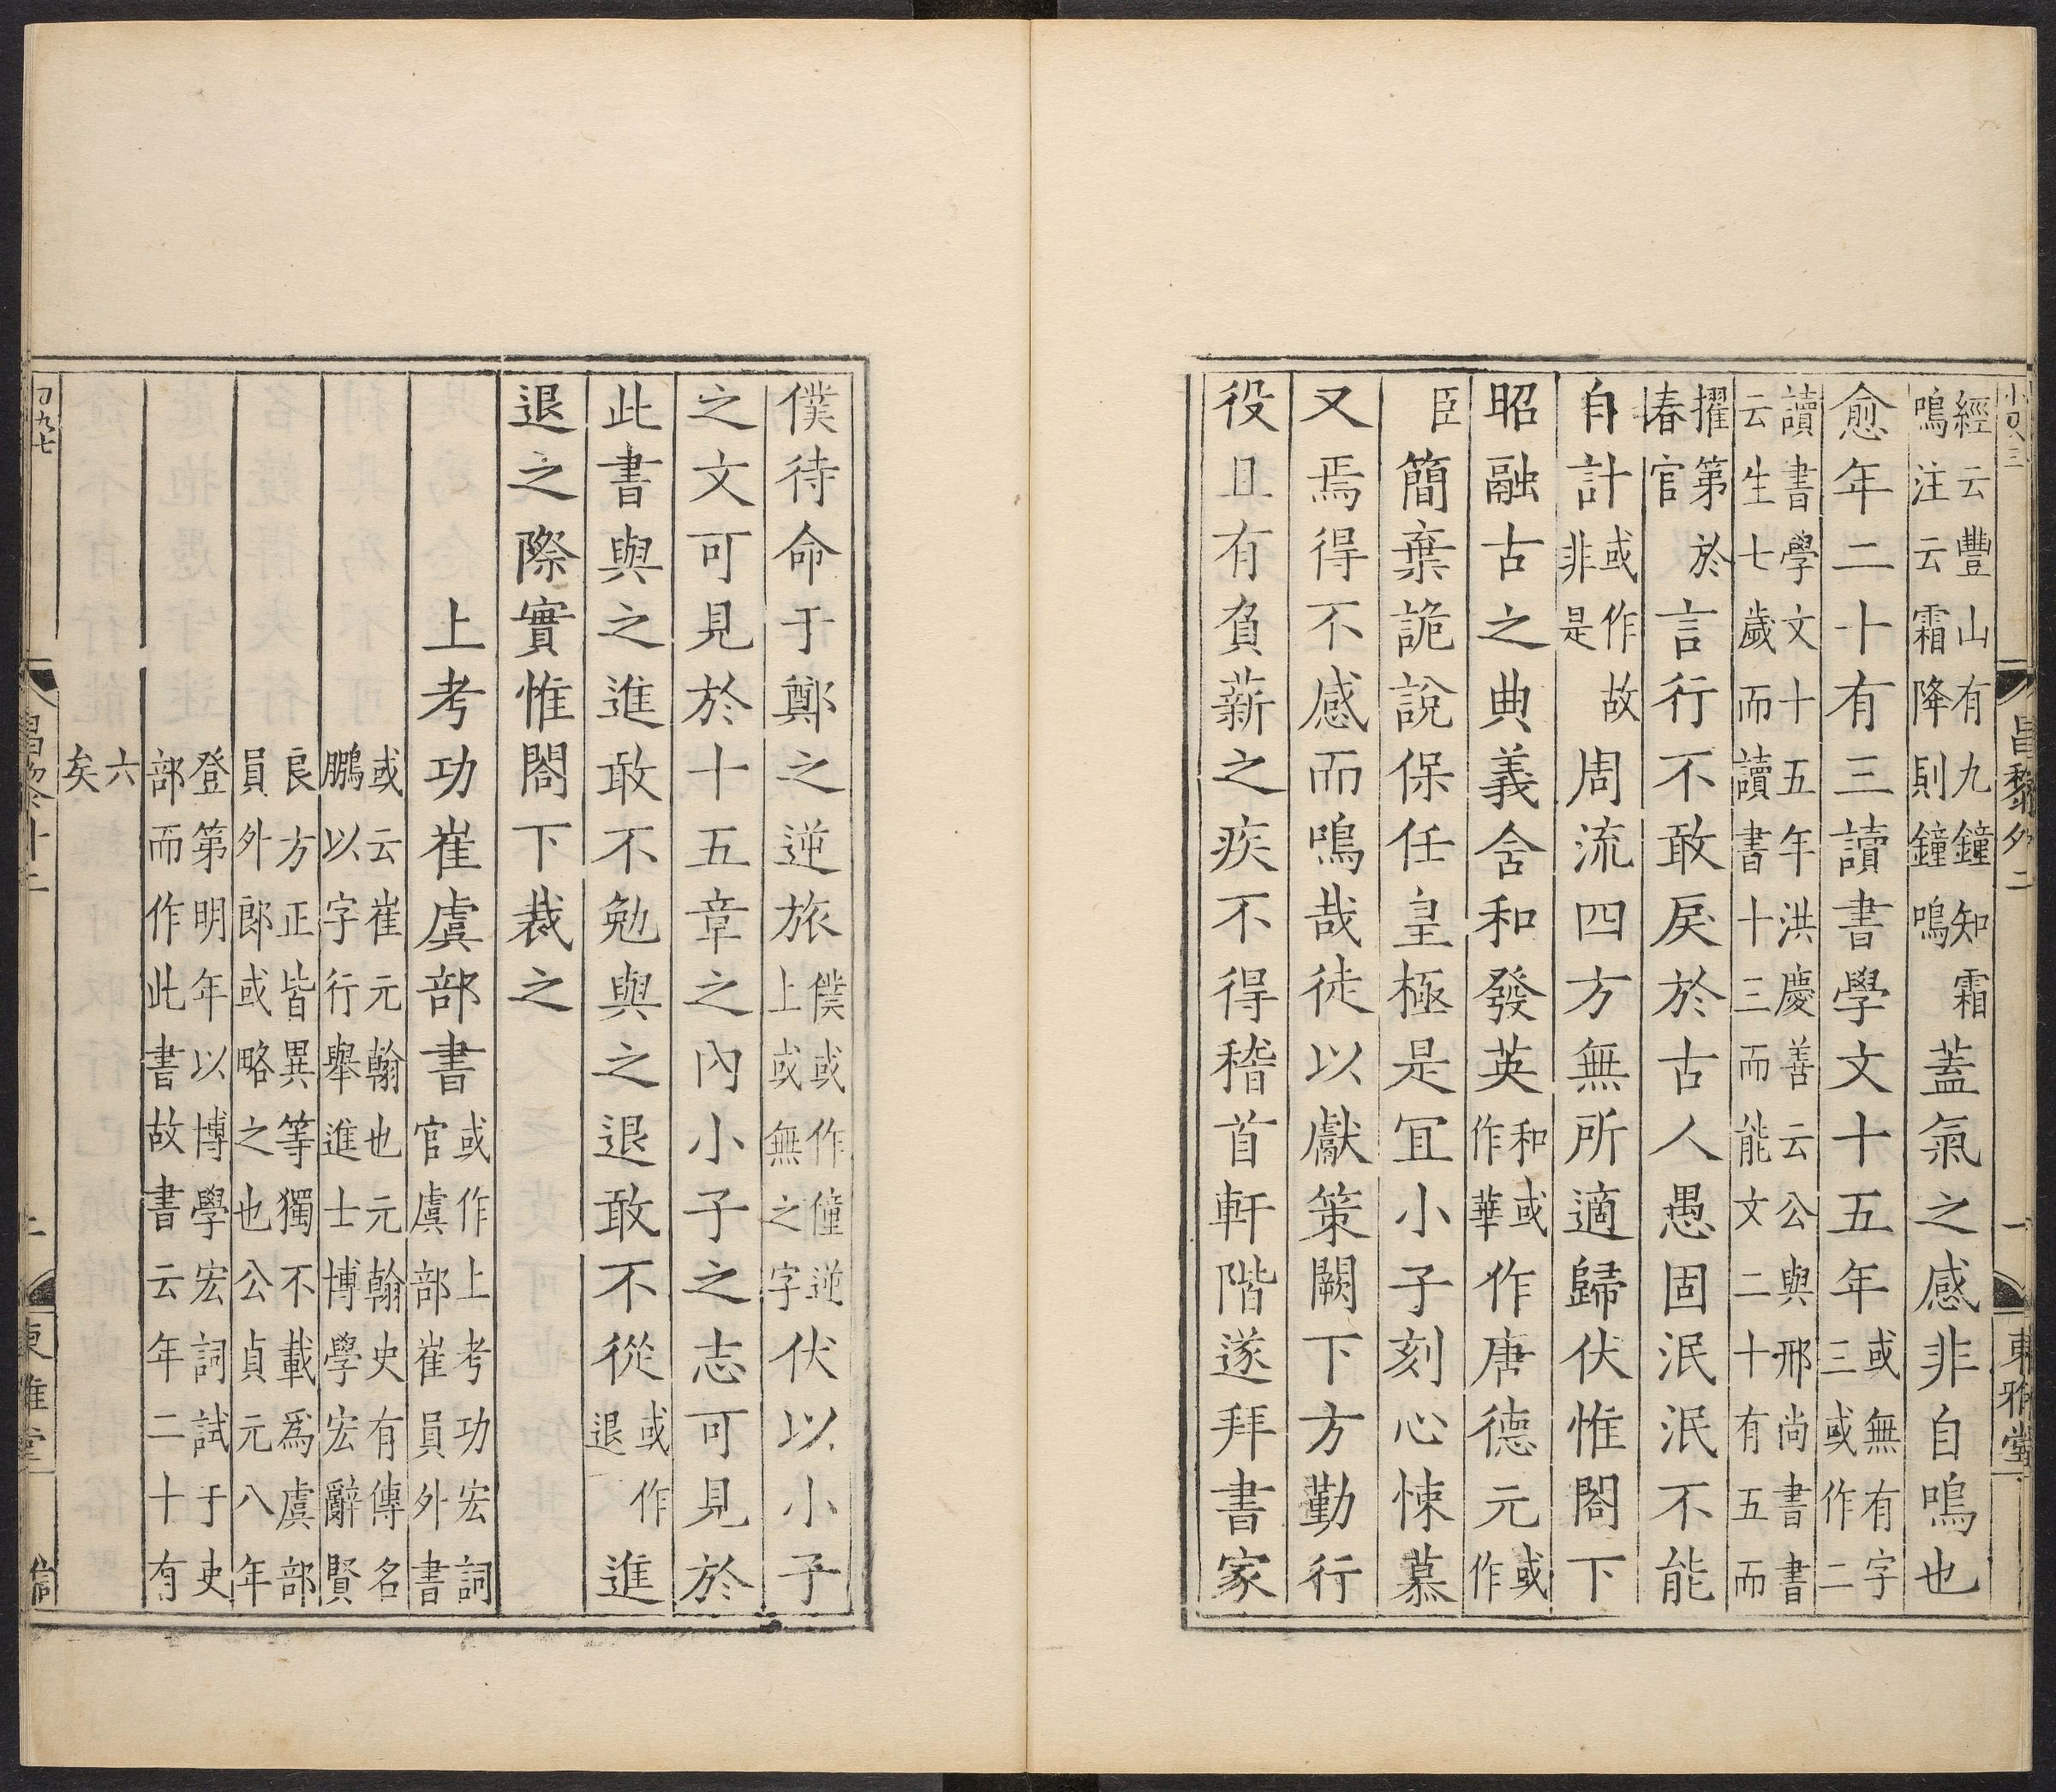 昌黎外二 一 東雅堂
經云豐山有九鐘知霜
鳴注云霜降則鐘鳴
蓋氣之感非自鳴也
愈年二十有三讀書學文十五年
或無有字
三或作二
讀書學文十五年洪慶善云公與邢尚書書
云生七歲而讀書十三而能文二十有五而
擢第於
春官
言行不敢戾於古人愚固泯泯不能
自計
或作故
非是
周流四方無所適歸伏惟閤下
昭融古之典義含和發英
和或
作華
作唐德元
或
作
臣
簡棄詭說保任皇極是宜小子刻心悚慕
又焉得不感而鳴哉徒以獻策闕下方勤行
役且有負薪之疾不得稽首軒階遂拜書家
僕待命于鄭之逆旅
僕或作僮逆
上或無之字
伏以小子
之文可見於十五章之內小子之志可見於
此書與之進敢不勉與之退敢不從
或作
退
進
退之際實惟閤下裁之
上考功崔虞部書
或作上考功宏詞
官虞部崔員外書
或云崔元翰也元翰史有傳名
鵬以字行舉進士博學宏辭賢
良方正皆異等獨不載爲虞部
員外郎或略之也公貞元八年
登第明年以博學宏詞試于吏
部而作此書故書云年二十有
六
矣
東雅堂